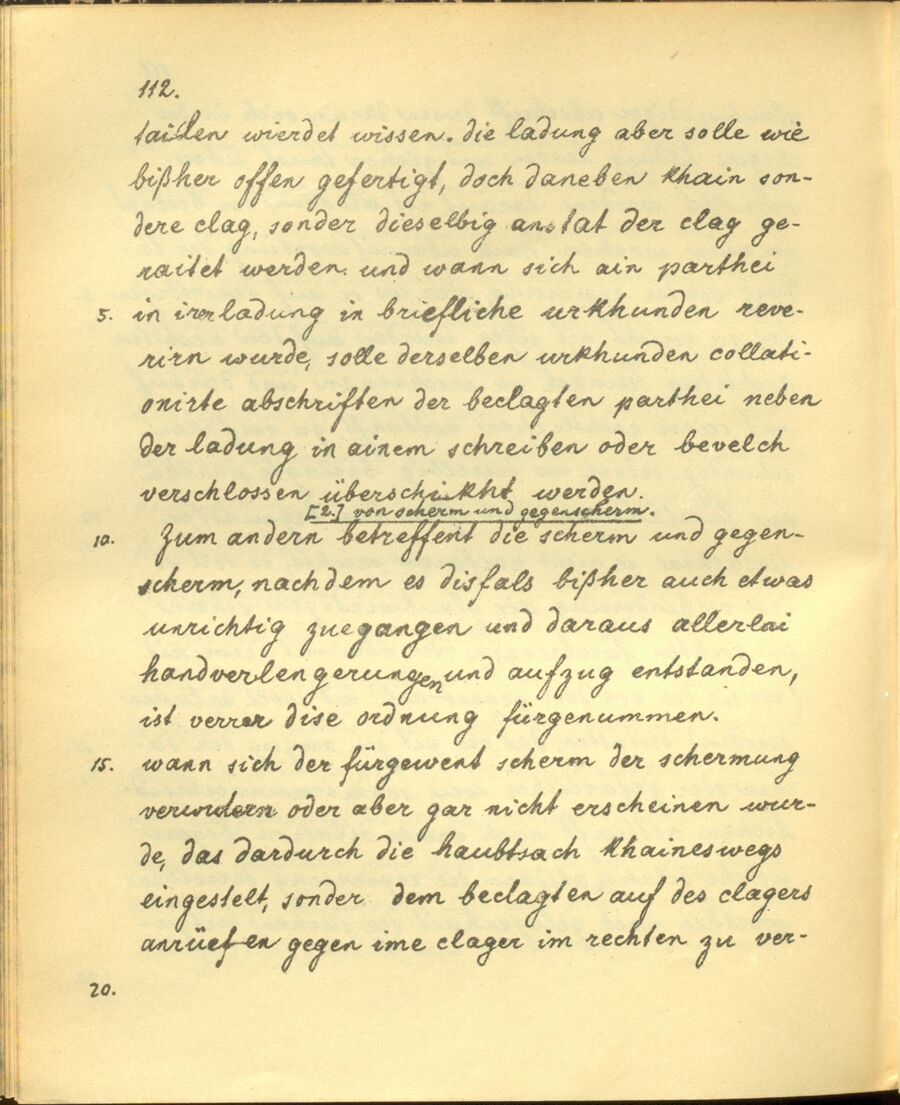 112.
tailen wierdet wissen. die ladung aber solle wie
bißher offen gefertigt, doch daneben khain son-
dere clag, sonder dieselbig anstat der clag ge-
raitet werden. und wann sich ain parthei
5. in irer ladung in briefliche urkhunden reve-
rirn wurde, solle derselben urkhunden collati-
onirte abschriften der beclagten parthei neben
der ladung in ainem schreiben oder bevelch
verschlossen überschikht werden.
[2.] von scherm und gegenscherm.
10. Zum andern betreffent die scherm und gegen-
scherm, nachdem es disfals bißher auch etwas
unrichtig zuegangen und daraus allerlai
handverlengerungen und aufzug entstanden,
ist verrer dise ordnung fürgenummen.
15. wann sich der fürgewent scherm der schermung
verwidern oder aber gar nicht erscheinen wur-
de, das dardurch die haubtsach khaineswegs
eingestelt, sonder dem beclagten auf des clagers
anrüefen gegen ime clager im rechten zu ver-
20.